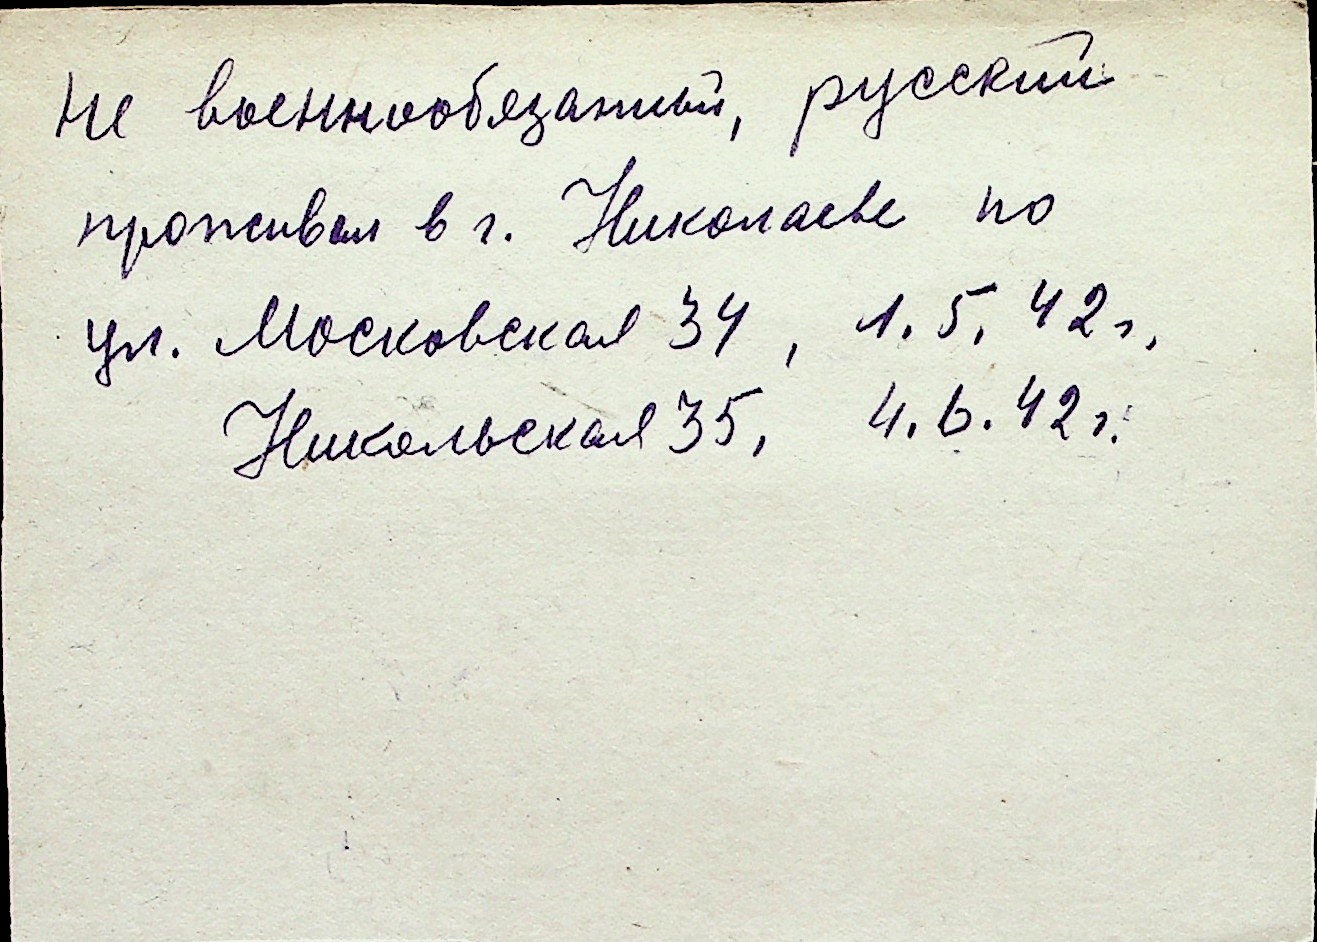 Не военнообязанный, русский
проживал в г. Николаеве по
ул. Московская 34, 1.5.42г.
Никольская 35, 4.6.42г.